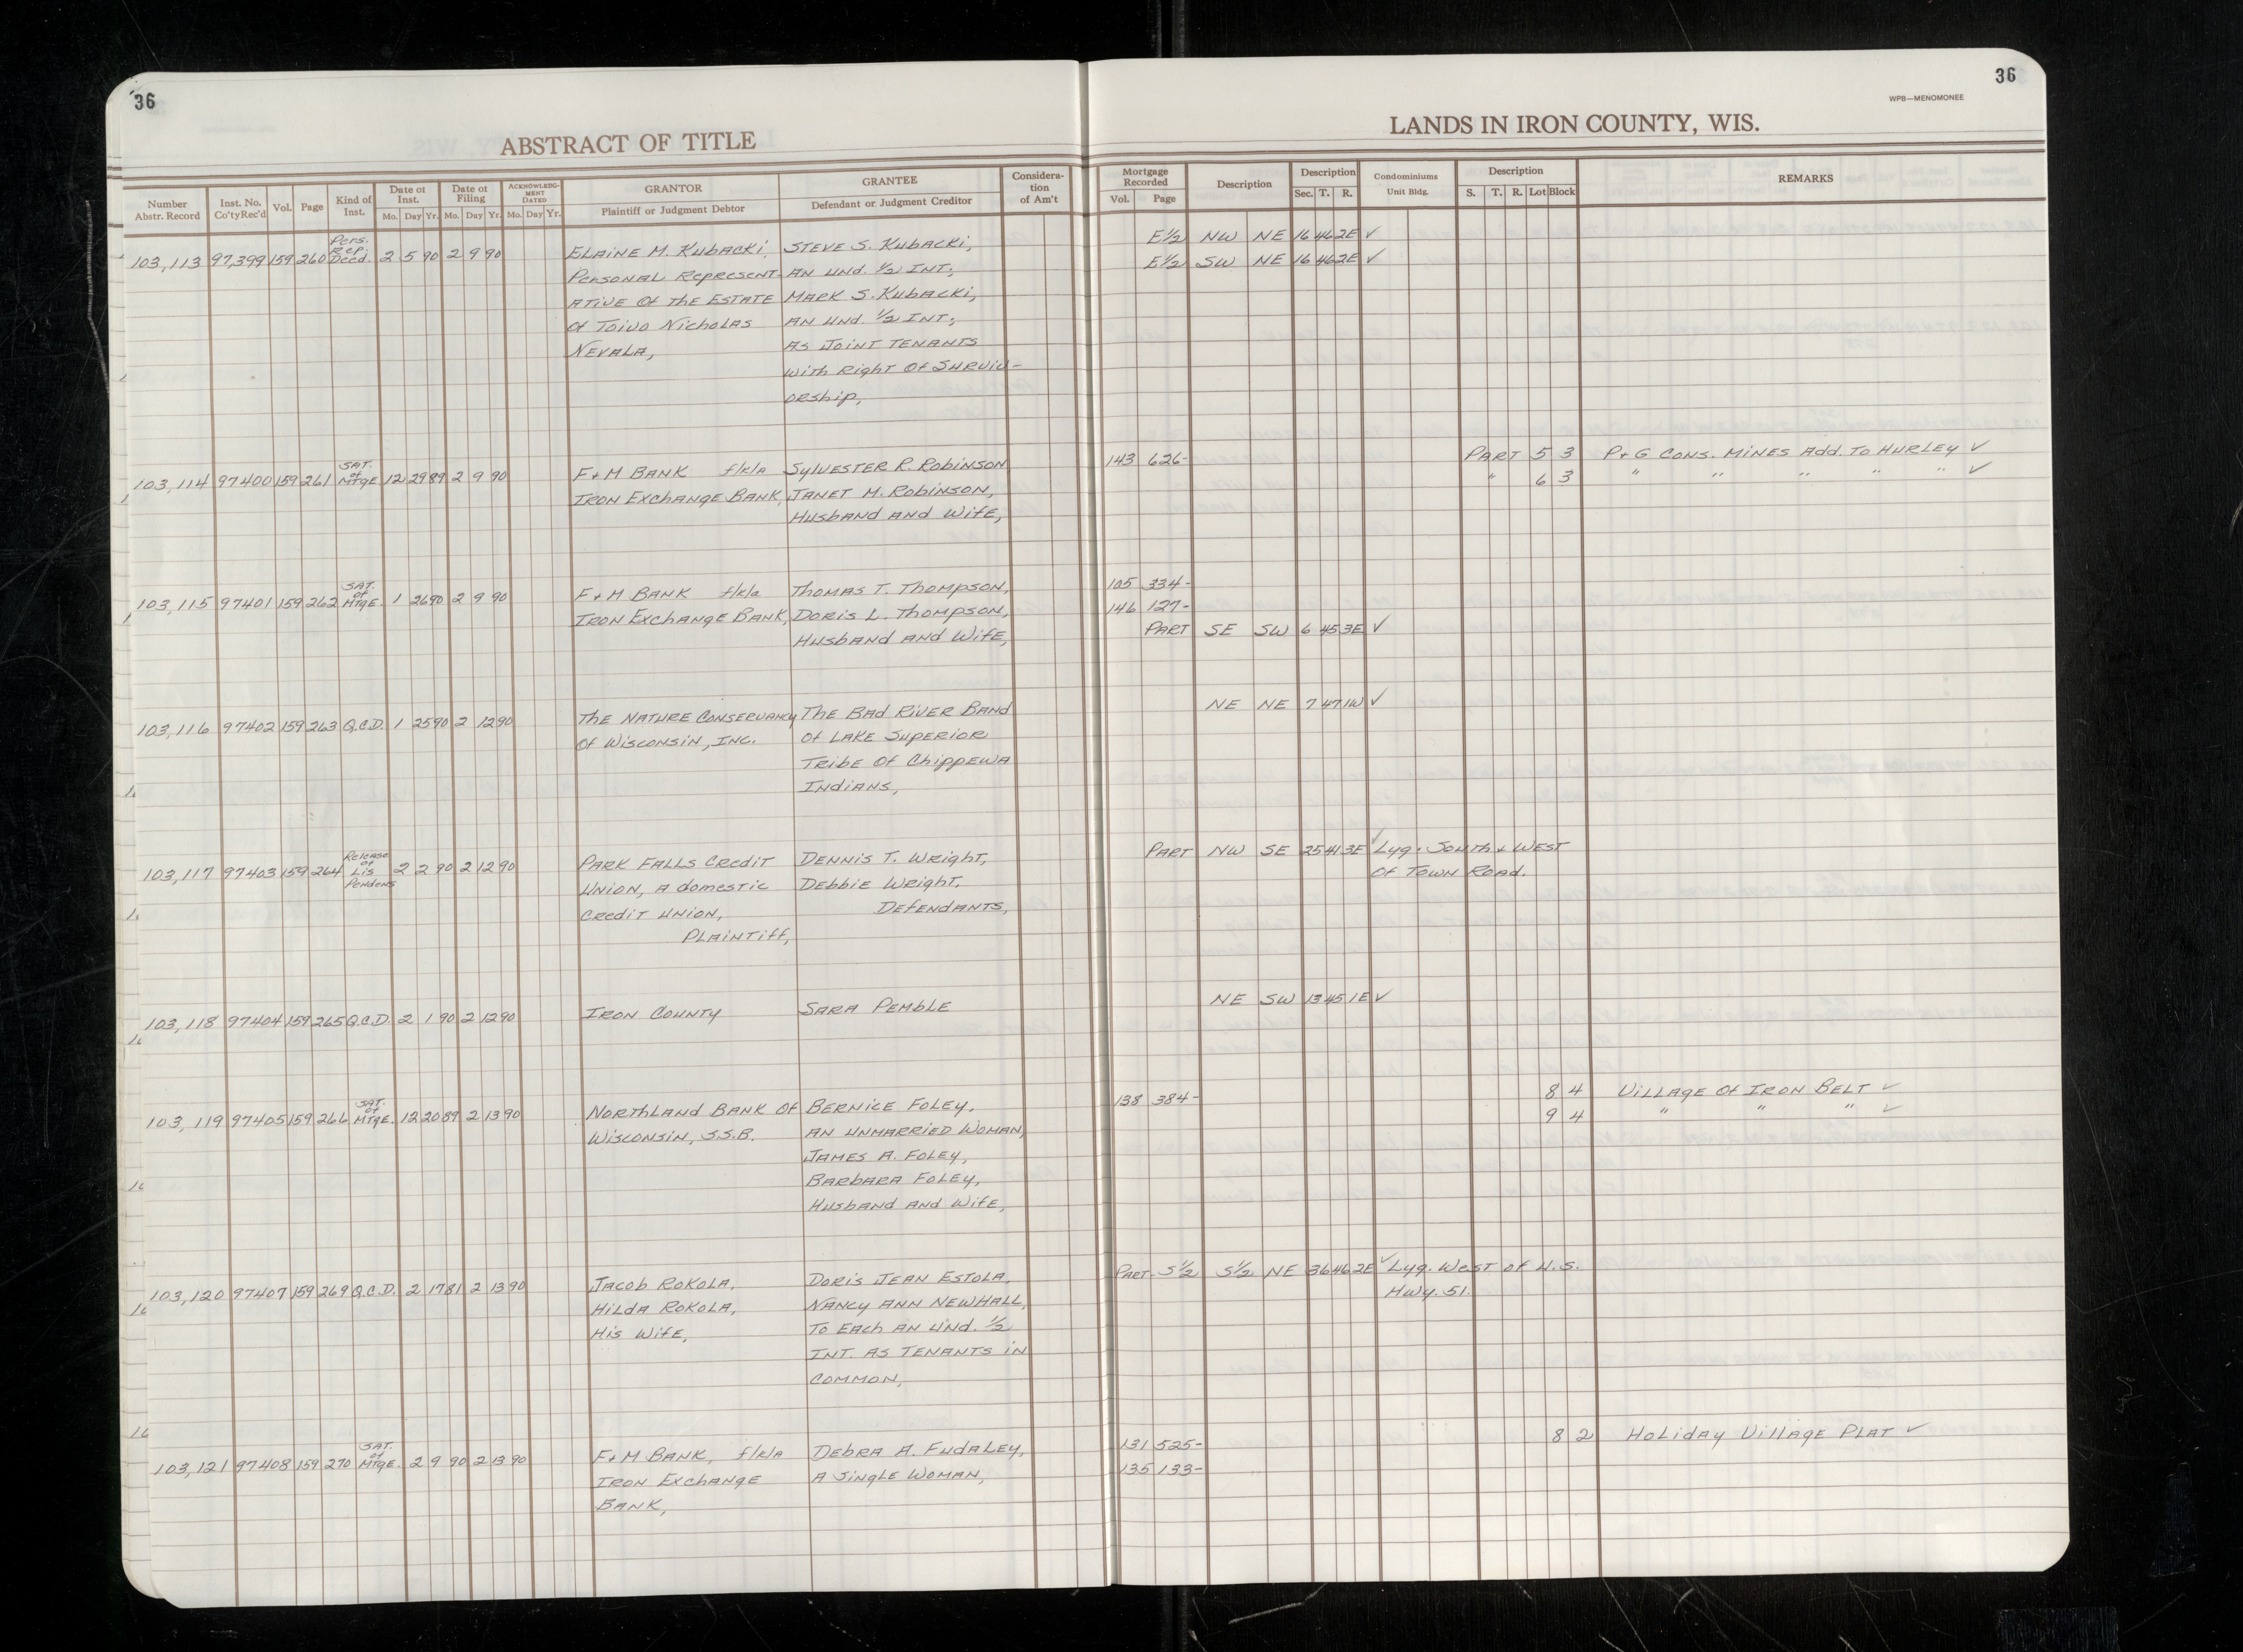 36
36
WPB—MENOMONEE
ABSTRACT OF TITLE
LANDS IN IRON COUNTY, WIS.
Number Abstr. Record | Inst. No. Co'ty Rec'd | Vol. | Page | Kind of Inst. | Date of Inst. Mo. Day Yr. | Date of Filing Mo. Day Yr. | ACKNOWLEDGMENT DATED Mo. Day Yr. | GRANTOR Plaintiff or Judgment Debtor | GRANTEE Defendant or Judgment Creditor | Consideration of Am't | Mortgage Recorded Vol. Page | Description | Description Sec. T. R. | Condominiums Unit Bldg. | Description S. T. R. Lot Block | REMARKS
103,113 97,399 159 260 Pers. Rep. Deed. 2 5 90 2 9 90 Elaine M. Kubacki, Steve S. Kubacki, E½ NW NE 16 46 2E ✓
Personal Represent- An und. ½ Int., E½ SW NE 16 46 2E ✓
ative of the Estate Mark S. Kubacki,
of Toivo Nicholas An und. ½ Int.,
Nevala, As Joint Tenants
With Right of Surviv-
orship,
103,114 97400 159 261 Sat. of Mtge 12 29 89 2 9 90 F+M Bank f/k/a Sylvester R. Robinson 143 626- Part 5 3 P+G Cons. Mines Add. To Hurley ✓
Iron Exchange Bank, Janet M. Robinson, " 6 3 " " " " " ✓
Husband and Wife,
103,115 97401 159 262 Sat. of Mtge. 1 26 90 2 9 90 F+M Bank f/k/a Thomas T. Thompson, 105 334-
Iron Exchange Bank, Doris L. Thompson, 146 127-
Husband and Wife, Part SE SW 6 45 3E ✓
103,116 97402 159 263 Q.C.D. 1 25 90 2 12 90 The Nature Conservancy The Bad River Band NE NE 7 47 1W ✓
of Wisconsin, Inc. of Lake Superior
Tribe of Chippewa
Indians,
103,117 97403 159 264 Release of Lis Pendens 2 2 90 2 12 90 Park Falls Credit Dennis T. Wright, Part NW SE 25 41 3E ✓ Lyg. South + West
Union, a domestic Debbie Wright, of Town Road.
Credit Union, Defendants,
Plaintiff,
103,118 97404 159 265 Q.C.D. 2 1 90 2 12 90 Iron County Sara Pemble NE SW 13 45 1E ✓
103,119 97405 159 266 Sat. of Mtge. 12 20 89 2 13 90 Northland Bank of Bernice Foley, 138 384- 8 4 Village of Iron Belt ✓
Wisconsin, S.S.B. An unmarried Woman, 9 4 " " " ✓
James A. Foley,
Barbara Foley,
Husband and Wife,
103,120 97407 159 269 Q.C.D. 2 17 81 2 13 90 Jacob Rokola, Doris Jean Estola, Part- S½ S½ NE 36 46 2E ✓ Lyg. West of U.S.
Hilda Rokola, Nancy Ann Newhall, Hwy. 51.
His Wife, To Each an und. ½
Int. As Tenants in
Common,
103,121 97408 159 270 Sat. of Mtge. 2 9 90 2 13 90 F+M Bank, f/k/a Debra A. Fudaley, 131 525- 8 2 Holiday Village Plat ✓
Iron Exchange A Single Woman, 135 133-
Bank,